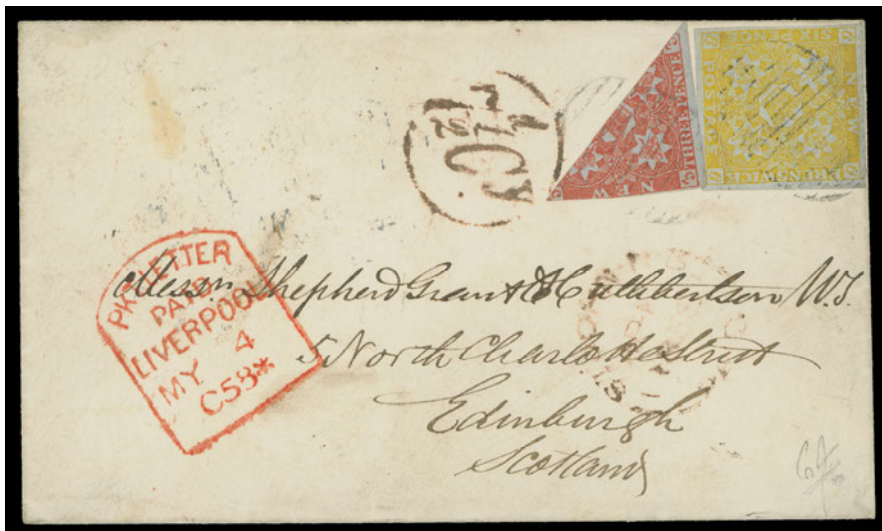 THREE PENCE
NEW
SIX PENCE
POSTAGE
NEW
PKT LETTER
PAID
LIVERPOOL
MY 4
C58*
PAID
ST
Messrs Shepherd Grant & Cuthbertson W.S.
5 North Charlotte Street
Edinburgh
Scotland